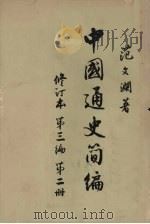 范文瀾著
中國通史簡編
修訂本 第三編 第二冊